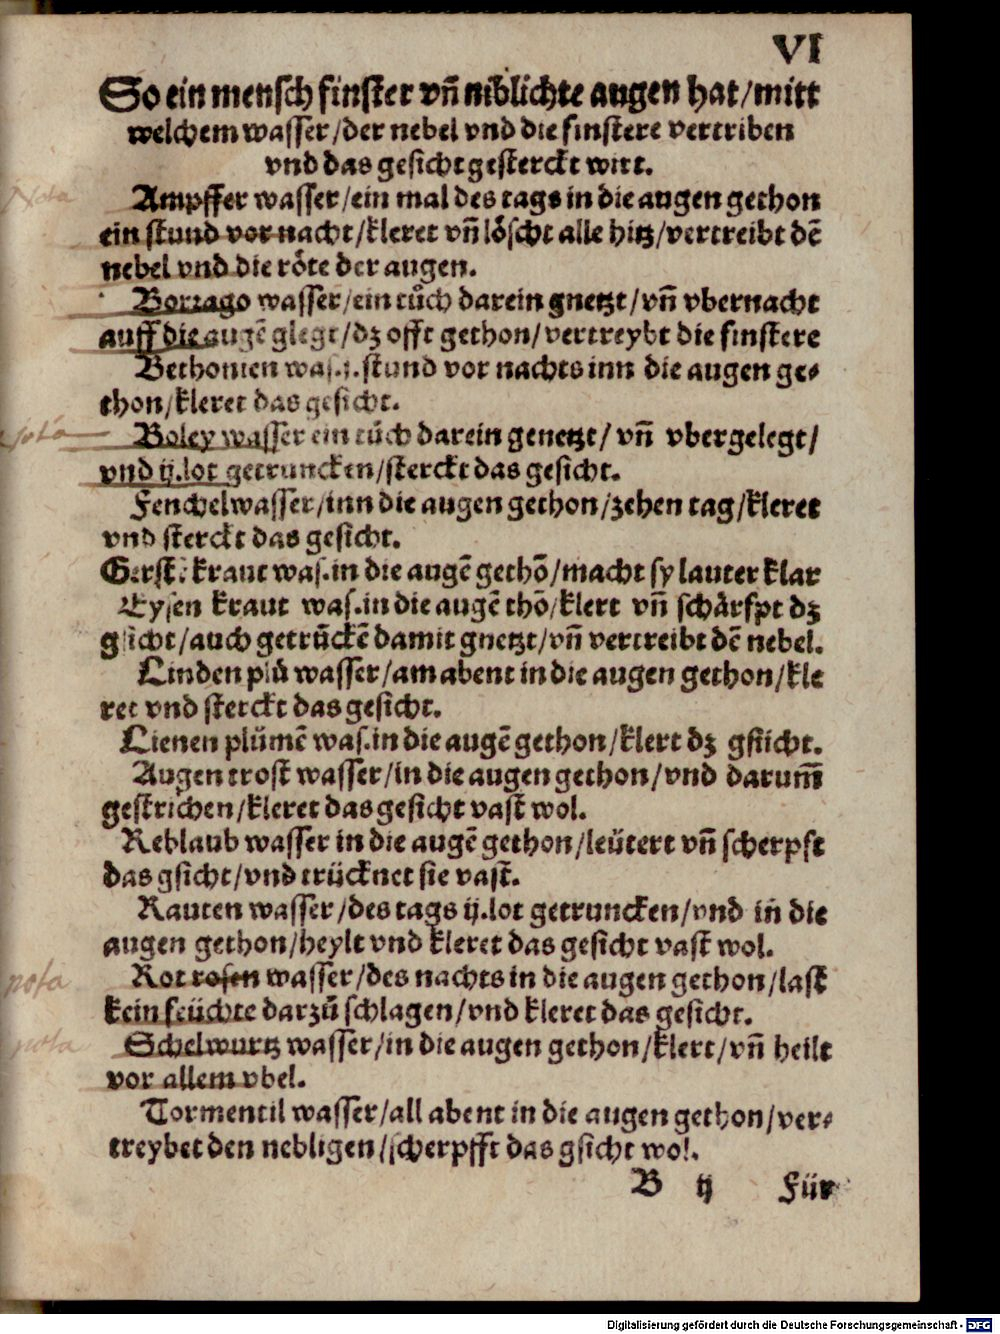 VI
So ein mensch finster vñ niblichte augen hat/mitt
welchem wasser/der nebel vnd die finstere vertriben
vnd das gesicht gesterckt wirt.
Nota
Ampffer wasser/ein mal des tags in die augen gethon
ein stund vor nacht/kleret vñ lo̊scht alle hitz/vertreibt dē
nebel vnd die ro̊te der augen.
Borrago wasser/ein tůch darein gnetzt/vñ vbernacht
auff die augē glegt/dz offt gethon/vertreybt die finstere
Bethonien was.j.stund vor nachts inn die augen ge⸗
thon/kleret das gesicht.
nota
Boley wasser ein tůch darein genetzt/ vñ vbergelegt/
vnd ij.lot getruncken/sterckt das gesicht.
Fenchelwasser/inn die augen gethon/zehen tag/kleret
vnd sterckt das gesicht.
Gerstē kraut was.in die augē gethō/macht sy lauter klar
Eysen kraut was.in die augē thō/klert vñ schårfpt dz
gsicht/auch getrūckē damit gnetzt/vñ vertreibt dē nebel.
Linden plů wasser/am abent in die augen gethon/kle
ret vnd sterckt das gesicht.
Lienen plůmē was.in die augē gethon/klert dz gsiicht.
Augen trost wasser/in die augen gethon/vnd darum̄
gestrichen/kleret das gesicht vast wol.
Reblaub wasser in die augē gethon/leütert vñ scherpft
das gsicht/vnd trücknet sie vast.
Rauten wasser/des tags ij.lot getruncken/vnd in̄ die
augen gethon/heylt vnd kleret das gesicht vast wol.
nota
Rot rosen wasser/des nachts in die augen gethon/last
kein feüchte darzů schlagen/vnd kleret das gesicht.
nota
Schelwurtz wasser/in die augen gethon/klert/vñ heilt
vor allem vbel.
Tormentil wasser/all abent in die augen gethon/ver⸗
treybet den nebligen/scherpfft das gsicht wol.
B ij Für
Digitalisierung gefördert durch die Deutsche Forschungsgemeinschaft - DFG